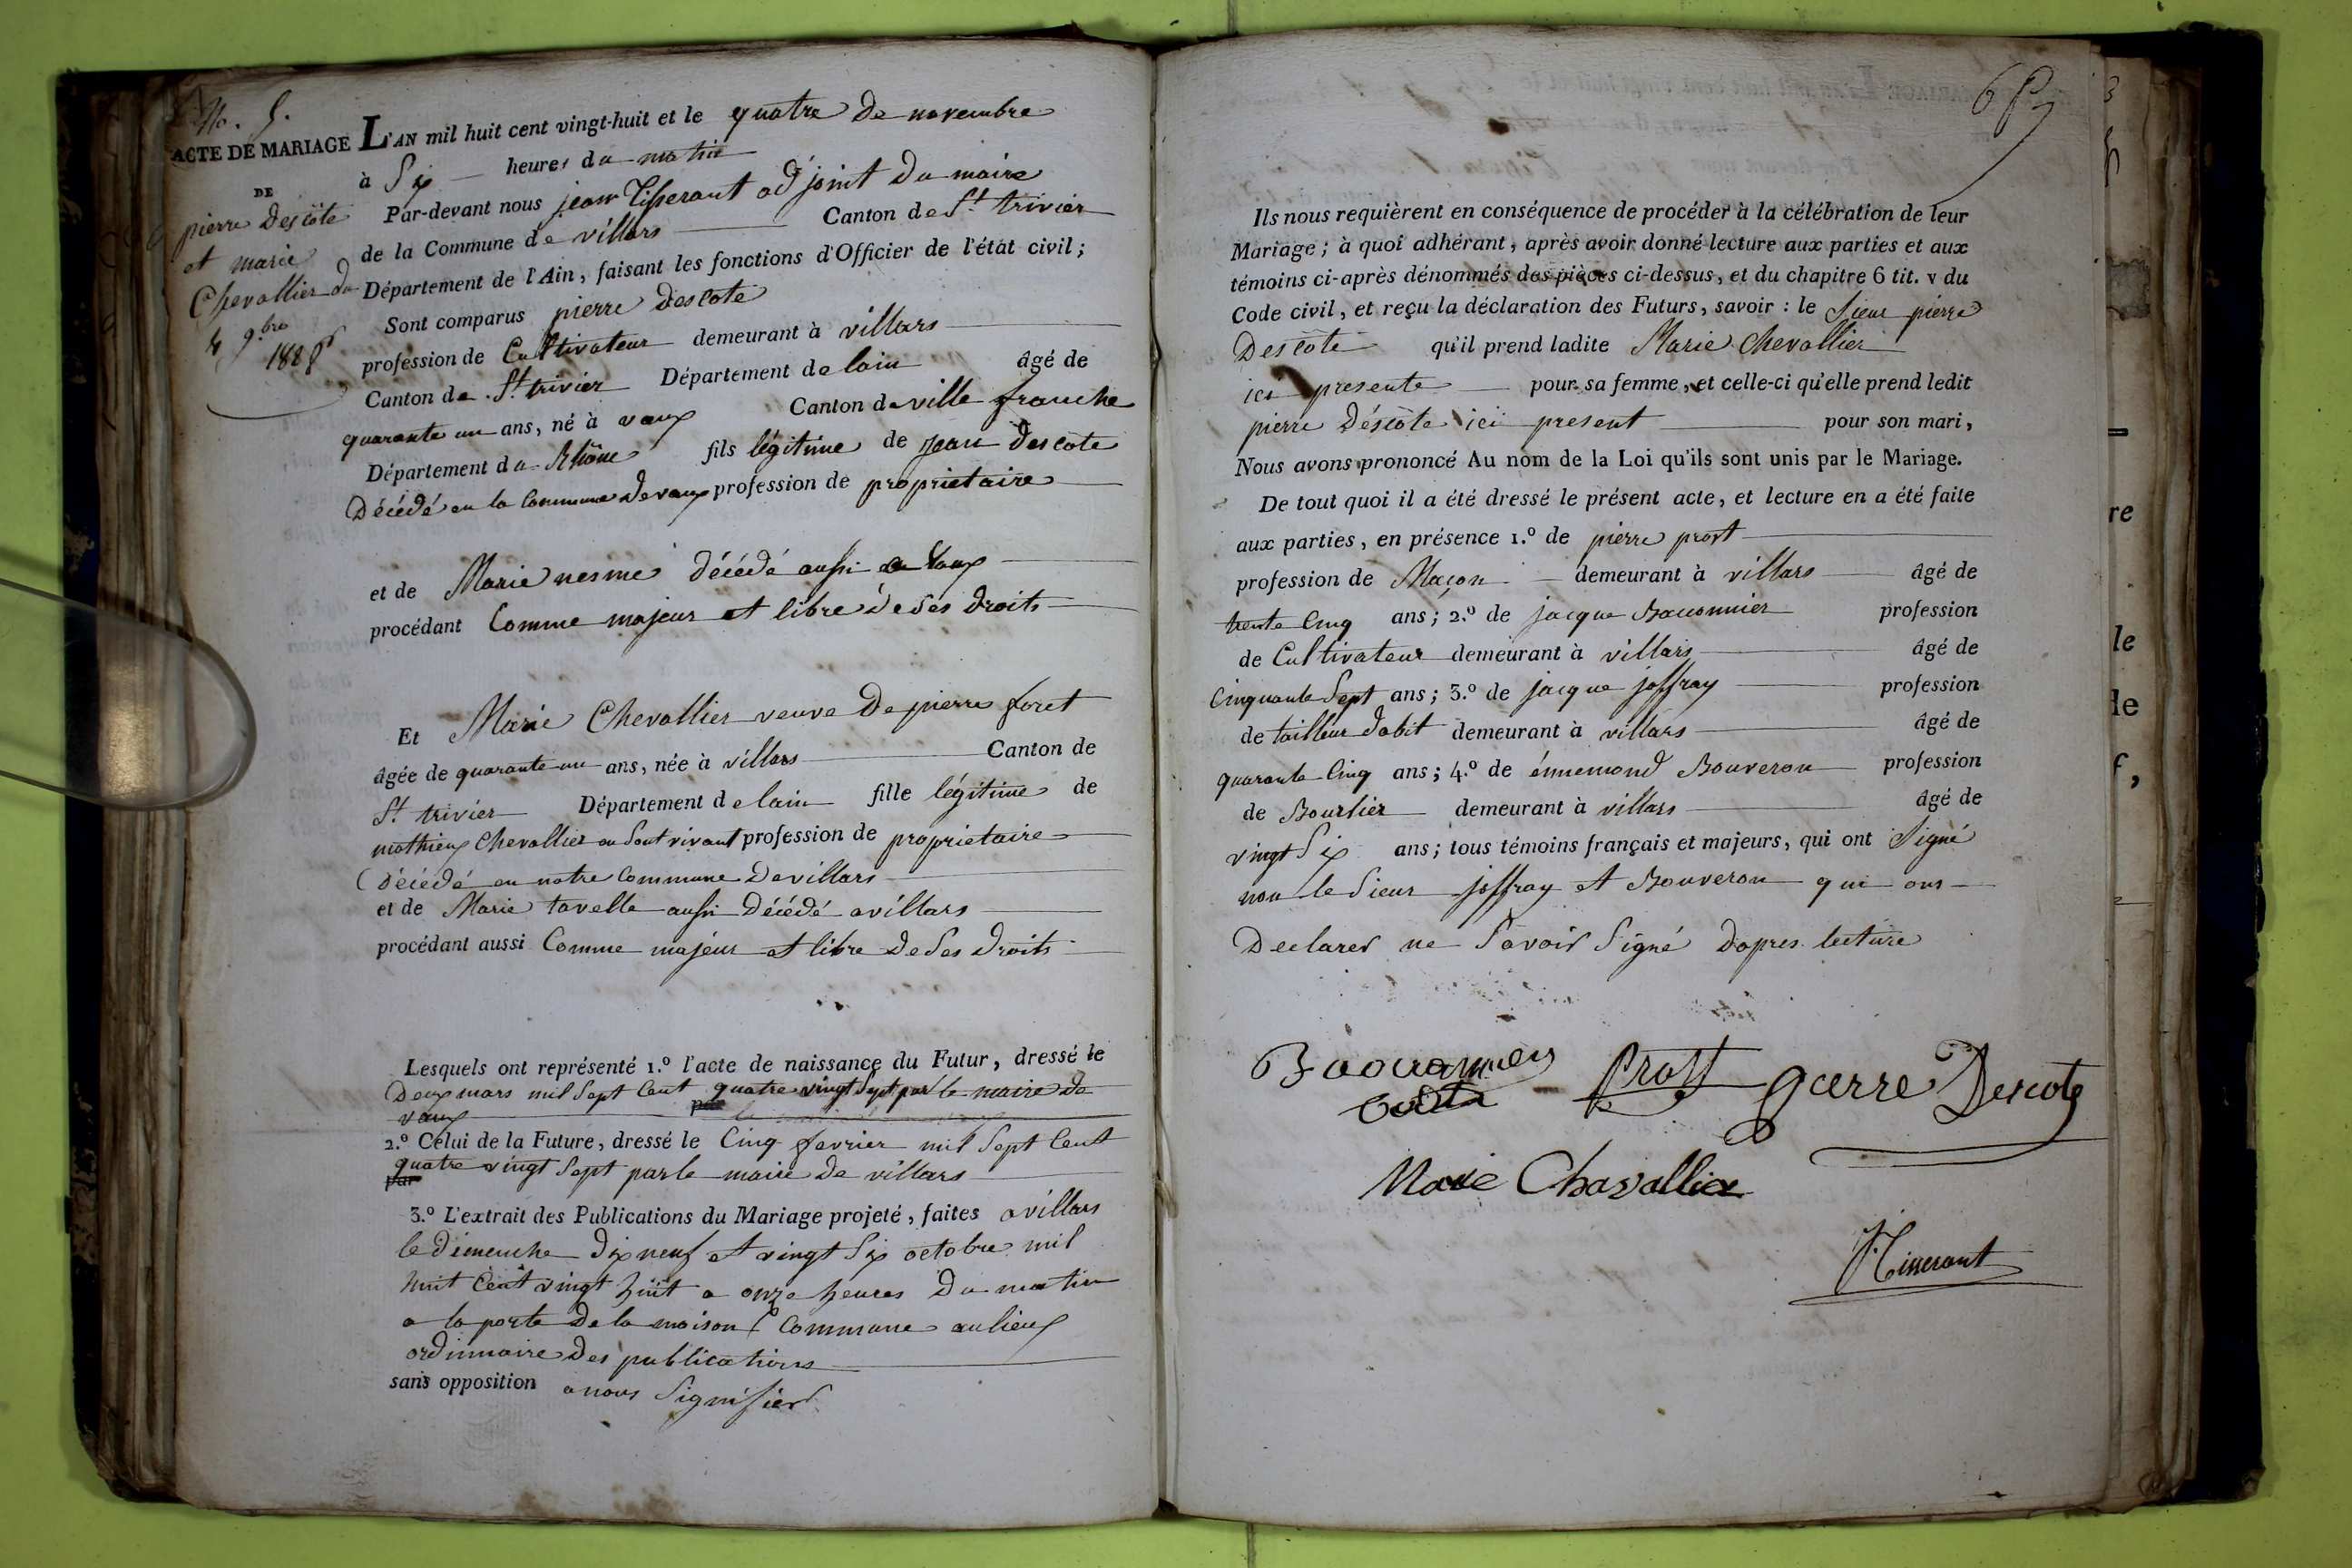 No. 5.
ACTE DE MARIAGE
DE
pierre Descôte
et marie
Chevallier du
4 9.bre
1828
L'AN mil huit cent vingt-huit et le quatre de novembre
à Six heures du matin
Par-devant nous jean Tisserant adjoint du maire
de la Commune de villars Canton de St trivier
Département de l'Ain, faisant les fonctions d'Officier de l'état civil;
Sont comparus pierre descote
profession de Cultivateur demeurant à villars
Canton de St trivier Département de lain âgé de
quarante un ans, né à vaux Canton de ville franche
Département du Rhône fils légitime de jean descote
Décédé en la Commune de vaux profession de proprietaire
et de Marie nesme décédé aussi a Vaux
procédant Comme majeur et libre de ses droits
Et Marie Chevallier veuve de pierre foret
âgée de quarante un ans, née à villars Canton de
St trivier Département de lain fille légitime de
mathieux Chevallier en Sont vivant profession de proprietaire
décédé en notre Commune de villars
et de Marie tavelle aussi Décédé a villars
procédant aussi Comme majeur et libre de Ses droits
Lesquels ont représenté 1.º l'acte de naissance du Futur, dressé le
Deux mars mil Sept Cent quatre vingt Sept par le maire de
par
vaux
2.º Celui de la Future, dressé le Cinq fevrier mil Sept Cent
quatre vingt Sept par le maire de villars
par
3.º L'extrait des Publications du Mariage projeté, faites a villars
le dimenche dix neuf et vingt Six octobre mil
huit Cent vingt huit a onze heures du matin
a la porte de la maison Commune au lieux
ordinnaire des publications
sans opposition a nous Signifier
Ils nous requièrent en conséquence de procéder à la célébration de leur
Mariage; à quoi adhérant, après avoir donné lecture aux parties et aux
témoins ci-après dénommés des pièces ci-dessus, et du chapitre 6 tit. v du
Code civil, et reçu la déclaration des Futurs, savoir : le Sieur pierre
Descôte qu'il prend ladite Marie Chevallier
ici presente pour sa femme, et celle-ci qu'elle prend ledit
pierre Déscôte ici present pour son mari,
Nous avons prononcé Au nom de la Loi qu'ils sont unis par le Mariage.
De tout quoi il a été dressé le présent acte, et lecture en a été faite
aux parties, en présence 1.º de pierre prost
profession de Maçon demeurant à villars âgé de
trente Cinq ans; 2.º de jacque Baconnier profession
de Cultivateur demeurant à villars âgé de
Cinquante Sept ans; 3.º de jacque joffray profession
de tailleur dabit demeurant à villars âgé de
quarante Cinq ans; 4.º de énnemond Bouveron profession
de Bourlier demeurant à villars âgé de
vingt Six ans; tous témoins français et majeurs, qui ont Signé
non le Sieur joffray et Bouveron qui ons
Declarer ne Savoir Signé dapres lecture
Prost pierre Descote
Marie Chavallier
Tisserant